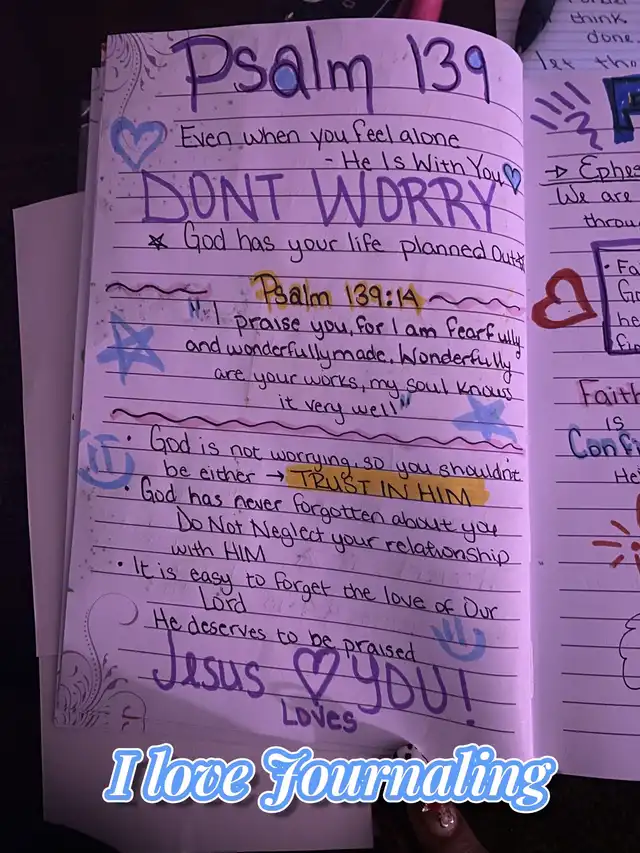 Psalm 139
Even when you feel alone
- He Is With You
DONT WORRY
God has your life planned Out
Psalm 139:14
"I praise you, for I am fearfully
and wonderfully made. Wonderfully
are your works, my soul knows
it very well"
• God is not worrying, so you shouldn't
be either → TRUST IN HIM
• God has never forgotten about you
Do Not Neglect your relationship
with HIM
• It is easy to forget the love of Our
Lord
He deserves to be praised
Jesus ♡ YOU!
Loves
think
done.
let tho
→ Ephes
We are
throu
• Fai
Go
he
Faith
IS
Confi
He
I love Journaling